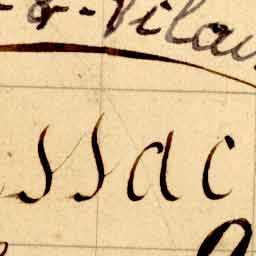 -&-Vilai
ssac